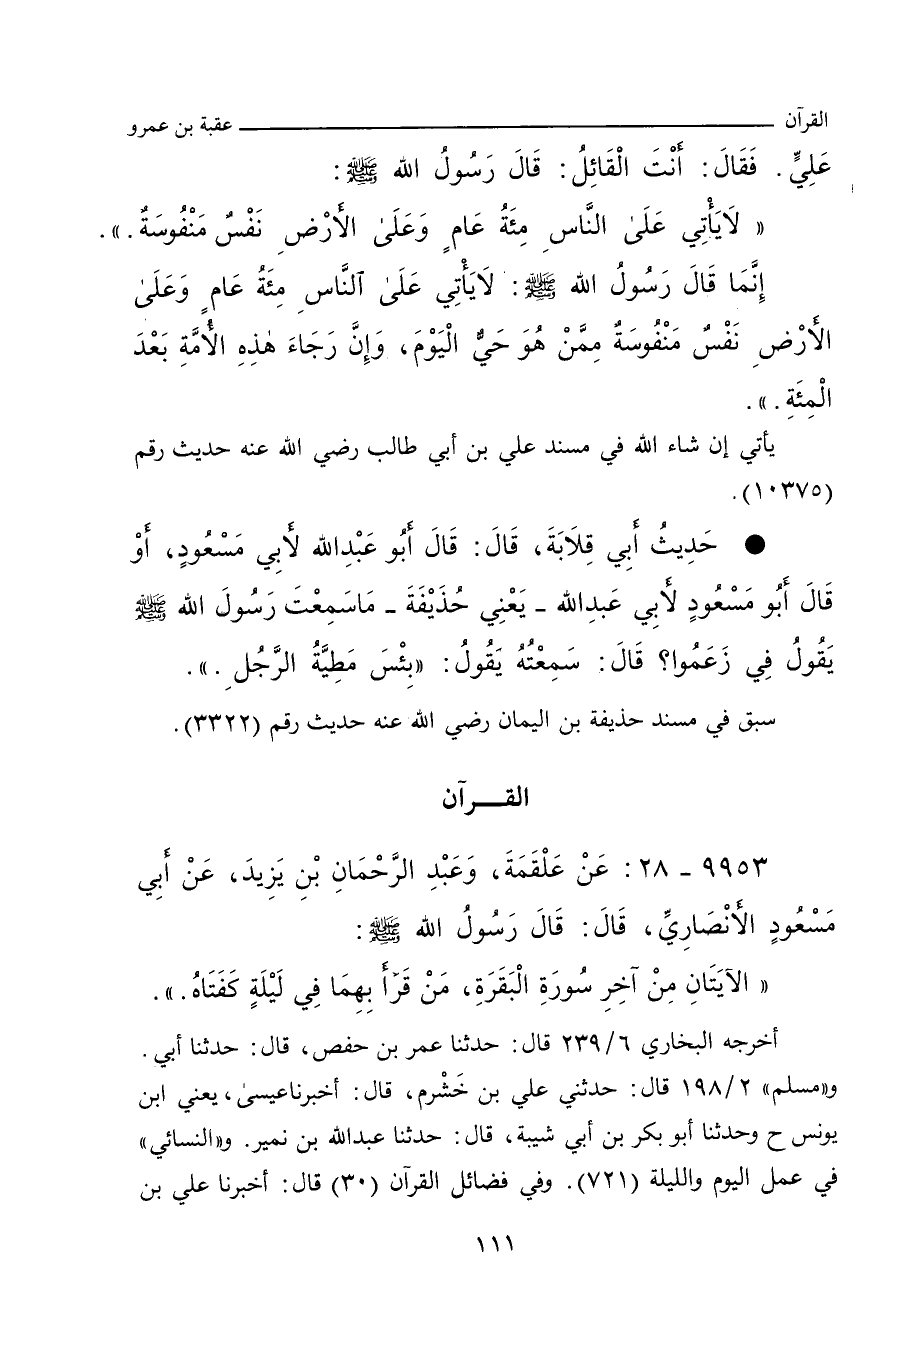 القرآن ــــــــــــــــــــ عقبة بن عمرو
عَلِيٍّ . فَقَالَ: أَنْتَ الْقَائِلُ: قَالَ رَسُولُ الله ﷺ:
« لَايَأْتِي عَلَىٰ النَّاسِ مِئَةُ عَامٍ وَعَلَىٰ الأَرْضِ نَفْسٌ مَنْفُوسَةٌ . ».
إِنَّمَا قَالَ رَسُولُ الله ﷺ: لَايَأْتِي عَلَىٰ ٱلنَّاسِ مِئَةُ عَامٍ وَعَلَىٰ
الأَرْضِ نَفْسٌ مَنْفُوسَةٌ مِمَّنْ هُوَ حَيٌّ الْيَوْمَ، وَإِنَّ رَجَاءَ هٰذِهِ الأُمَّةِ بَعْدَ
الْمِئَةِ . ».
يأتي إن شاء الله في مسند علي بن أبي طالب رضي الله عنه حديث رقم
(١٠٣٧٥).
● حَدِيثُ أَبِي قِلَابَةَ، قَالَ: قَالَ أَبُو عَبْدِالله لأَبِي مَسْعُودٍ، أَوْ
قَالَ أَبُو مَسْعُودٍ لأَبِي عَبدِالله ـ يَعْنِي حُذَيْفَةَ ـ مَاسَمِعْتَ رَسُولَ الله ﷺ
يَقُولُ فِي زَعَمُوا؟ قَالَ: سَمِعْتُهُ يَقُولُ: «بِئْسَ مَطِيَّةُ الرَّجُلِ . ».
سبق في مسند حذيفة بن اليمان رضي الله عنه حديث رقم (٣٣٢٢).
القـــرآن
٩٩٥٣ ـ ٢٨: عَنْ عَلْقَمَةَ، وَعَبْدِ الرَّحْمَانِ بْنِ يَزِيدَ، عَنْ أَبِي
مَسْعُودٍ الأَنْصَارِيِّ، قَالَ: قَالَ رَسُولُ الله ﷺ:
« الآيَتَانِ مِنْ آخِرِ سُورَةِ الْبَقَرَةِ، مَنْ قَرَأَ بِهِمَا فِي لَيْلَةٍ كَفَتَاهُ . ».
أخرجه البخاري ٢٣٩/٦ قال: حدثنا عمر بن حفص، قال: حدثنا أبي .
و«مسلم» ١٩٨/٢ قال: حدثني علي بن خَشْرم، قال: أخبرناعيسىٰ، يعني ابن
يونس ح وحدثنا أبو بكر بن أبي شيبة، قال: حدثنا عبدالله بن نمير. و«النسائي»
في عمل اليوم والليلة (٧٢١). وفي فضائل القرآن (٣٠) قال: أخبرنا علي بن
١١١